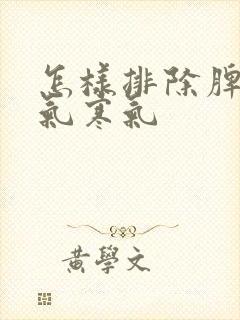 怎樣排除脾
氣寒氣
黃學文